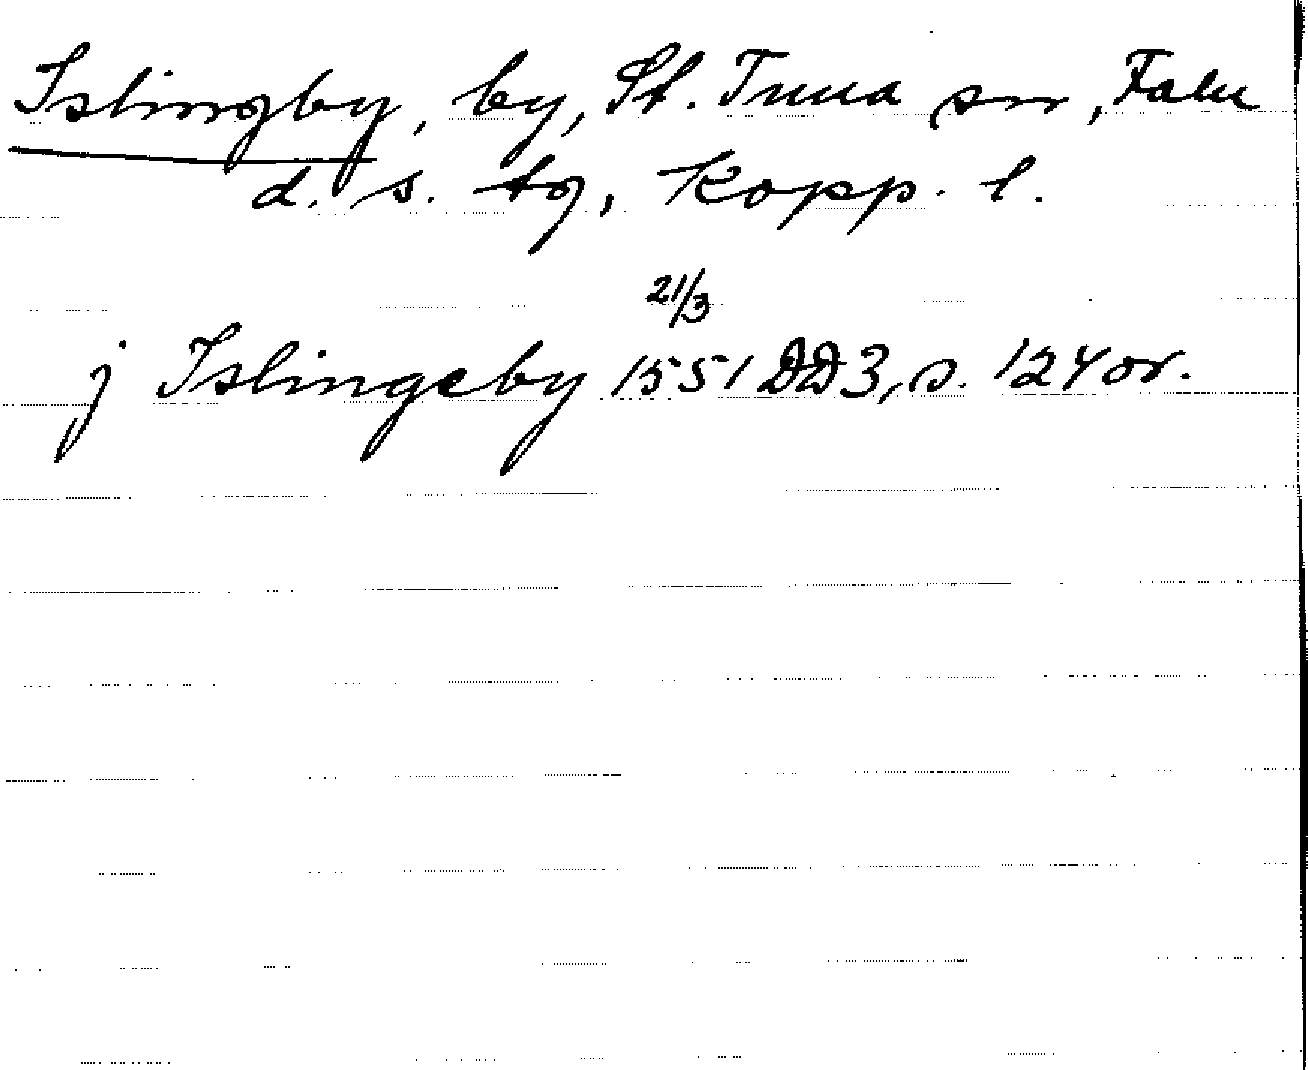 Islingby, by, St. Tuna sn, Falu
d. s. tg, Kopp. l.
21/3
j Islingeby 1551 DD3, s. 124 or.